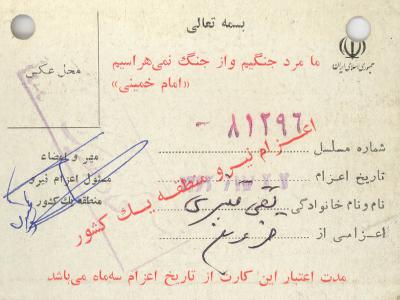 بسمه تعالی
ما مرد جنگیم واز جنگ نمی‌هراسیم
«امام خمینی»
جمهوری اسلامی ایران
محل عکس
شماره مسلسل
۸۱۲۹۶ -
اعزام نیرو منطقه یک کشور
تاریخ اعزام
نام ونام خانوادگی
تقی
اعزامی از
مهر و امضاء
مسئول اعزام نیروی
منطقه یک کشور
مدت اعتبار این کارت از تاریخ اعزام سه‌ماه می‌باشد